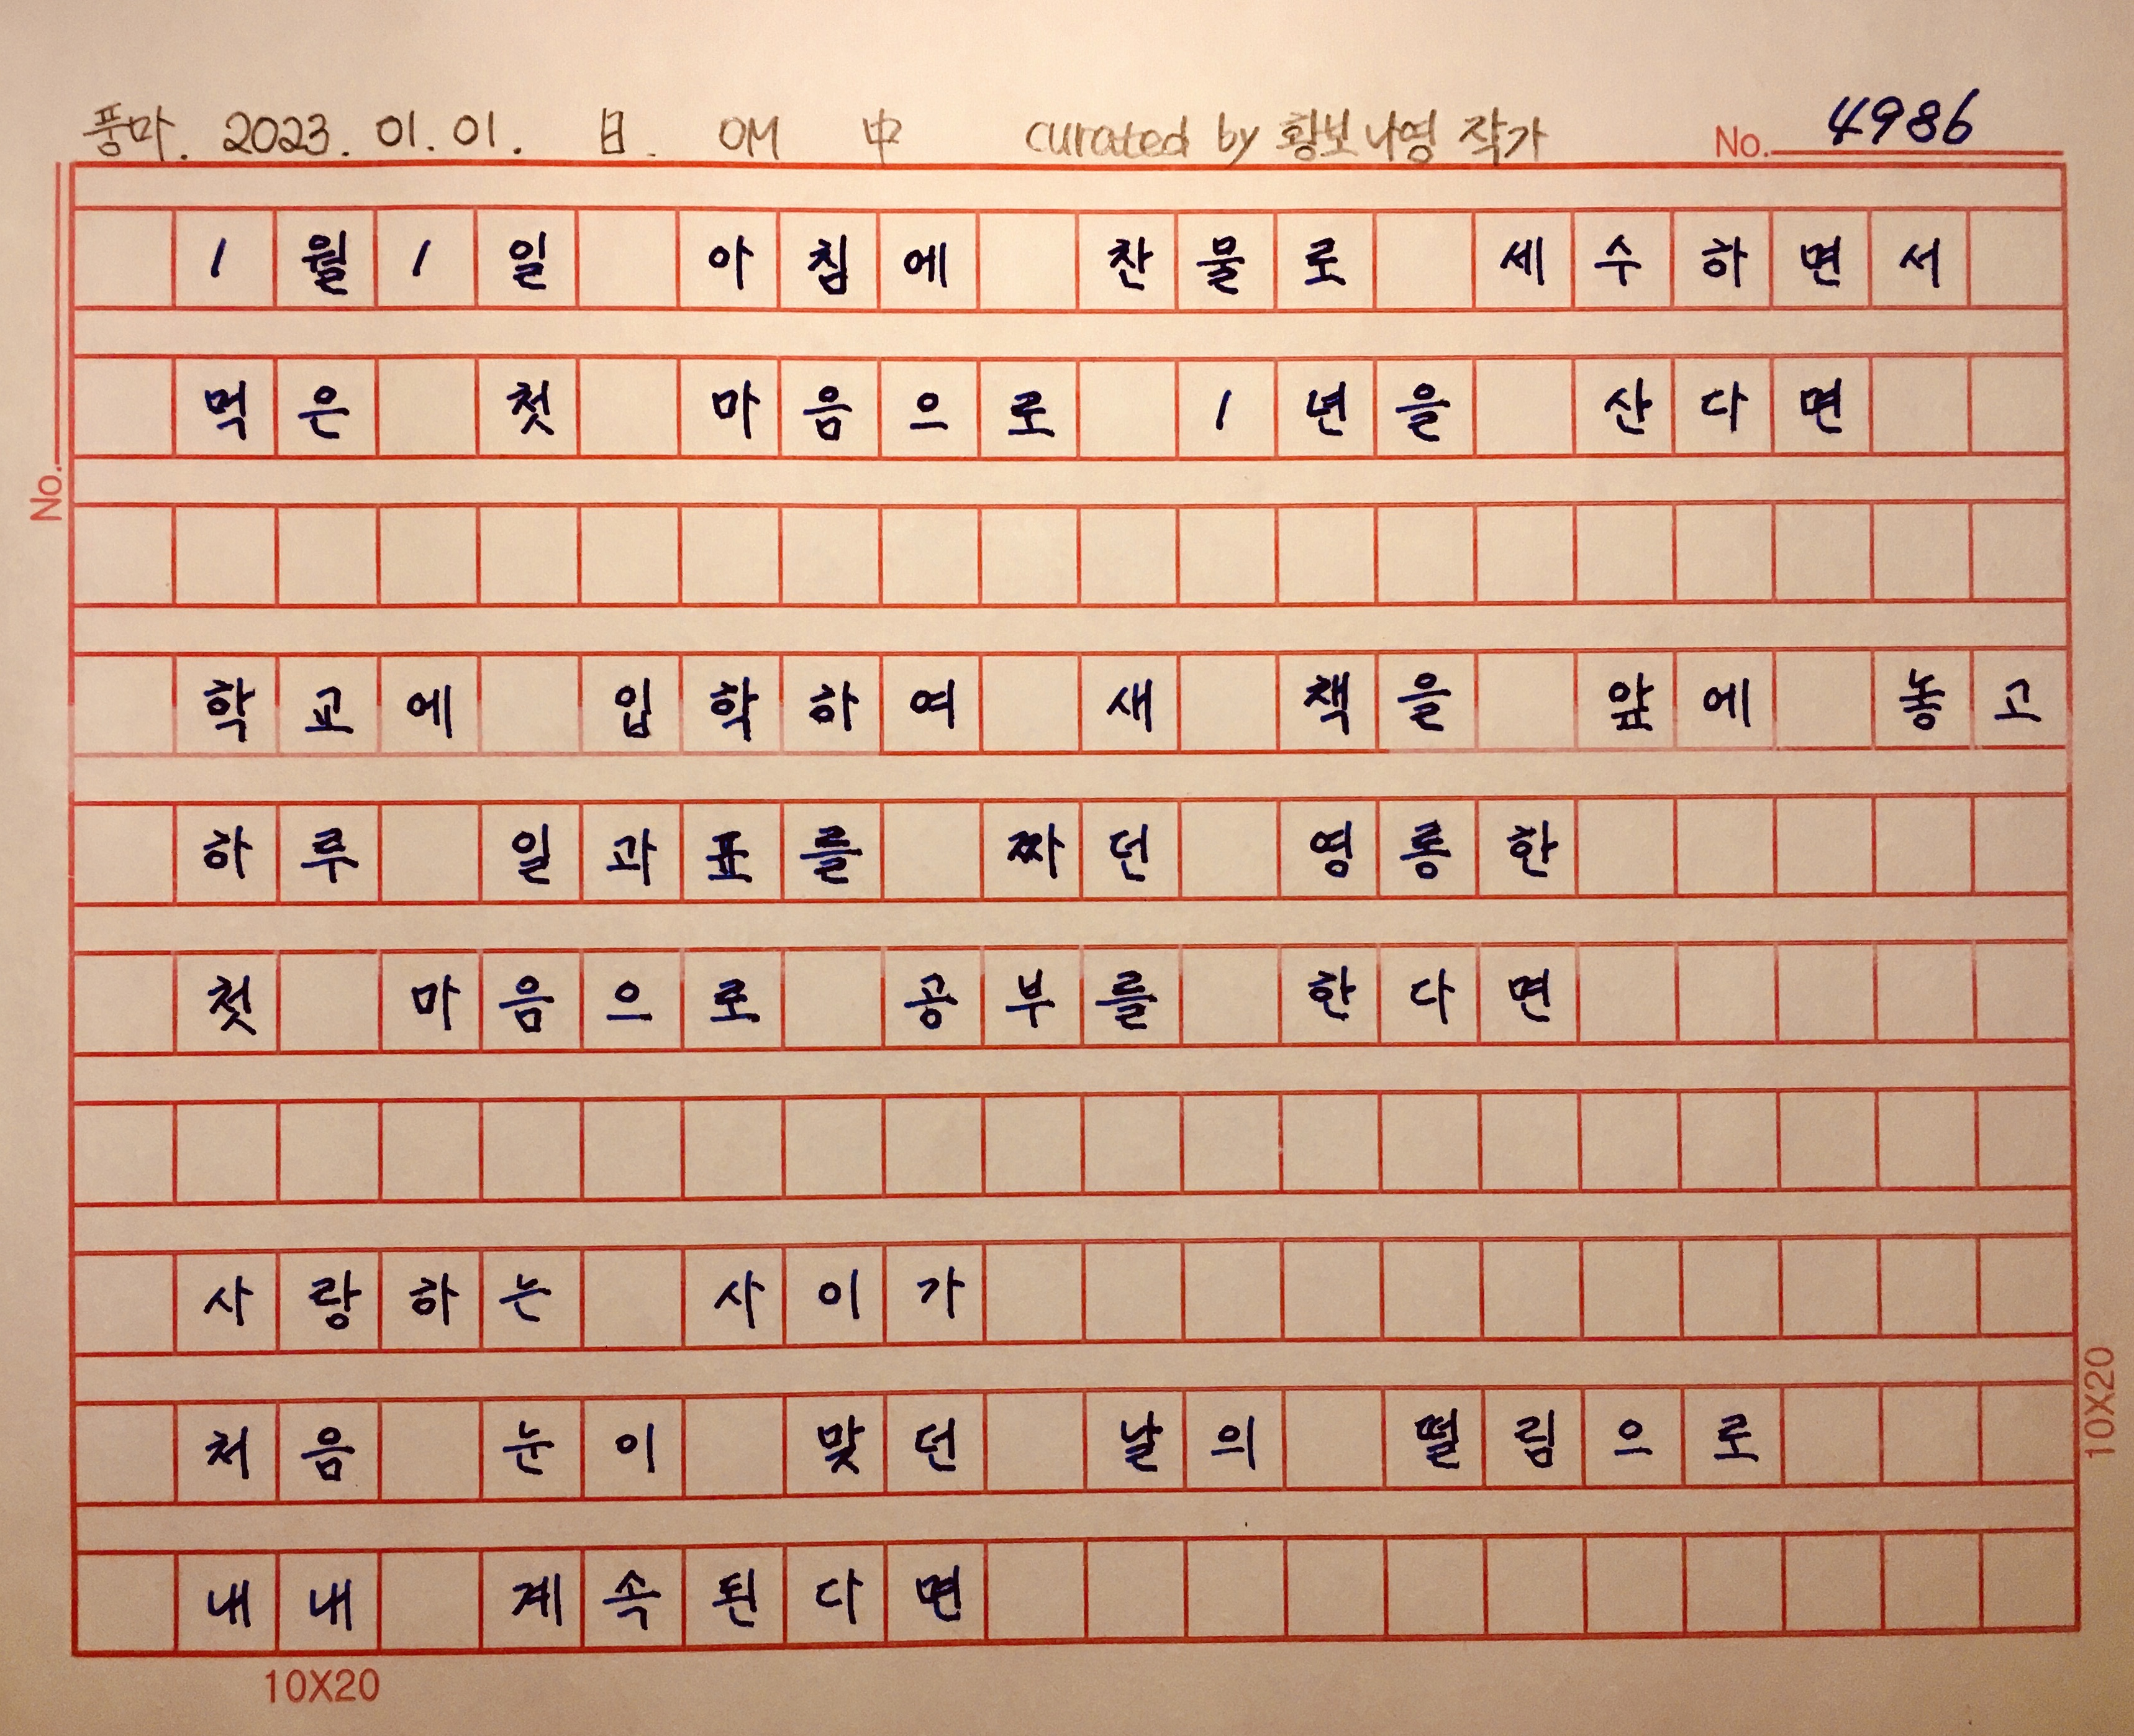 풍마. 2023. 01. 01. 日. OM 中 curated by 황보나영 작가 No. 4986
1월1일 아침에 찬물로 세수하면서
먹은 첫 마음으로 1년을 산다면
학교에 입학하여 새 책을 앞에 놓고
하루 일과표를 짜던 영롱한
첫 마음으로 공부를 한다면
사랑하는 사이가
처음 눈이 맞던 날의 떨림으로
내내 계속된다면
No.
10X20
10X20